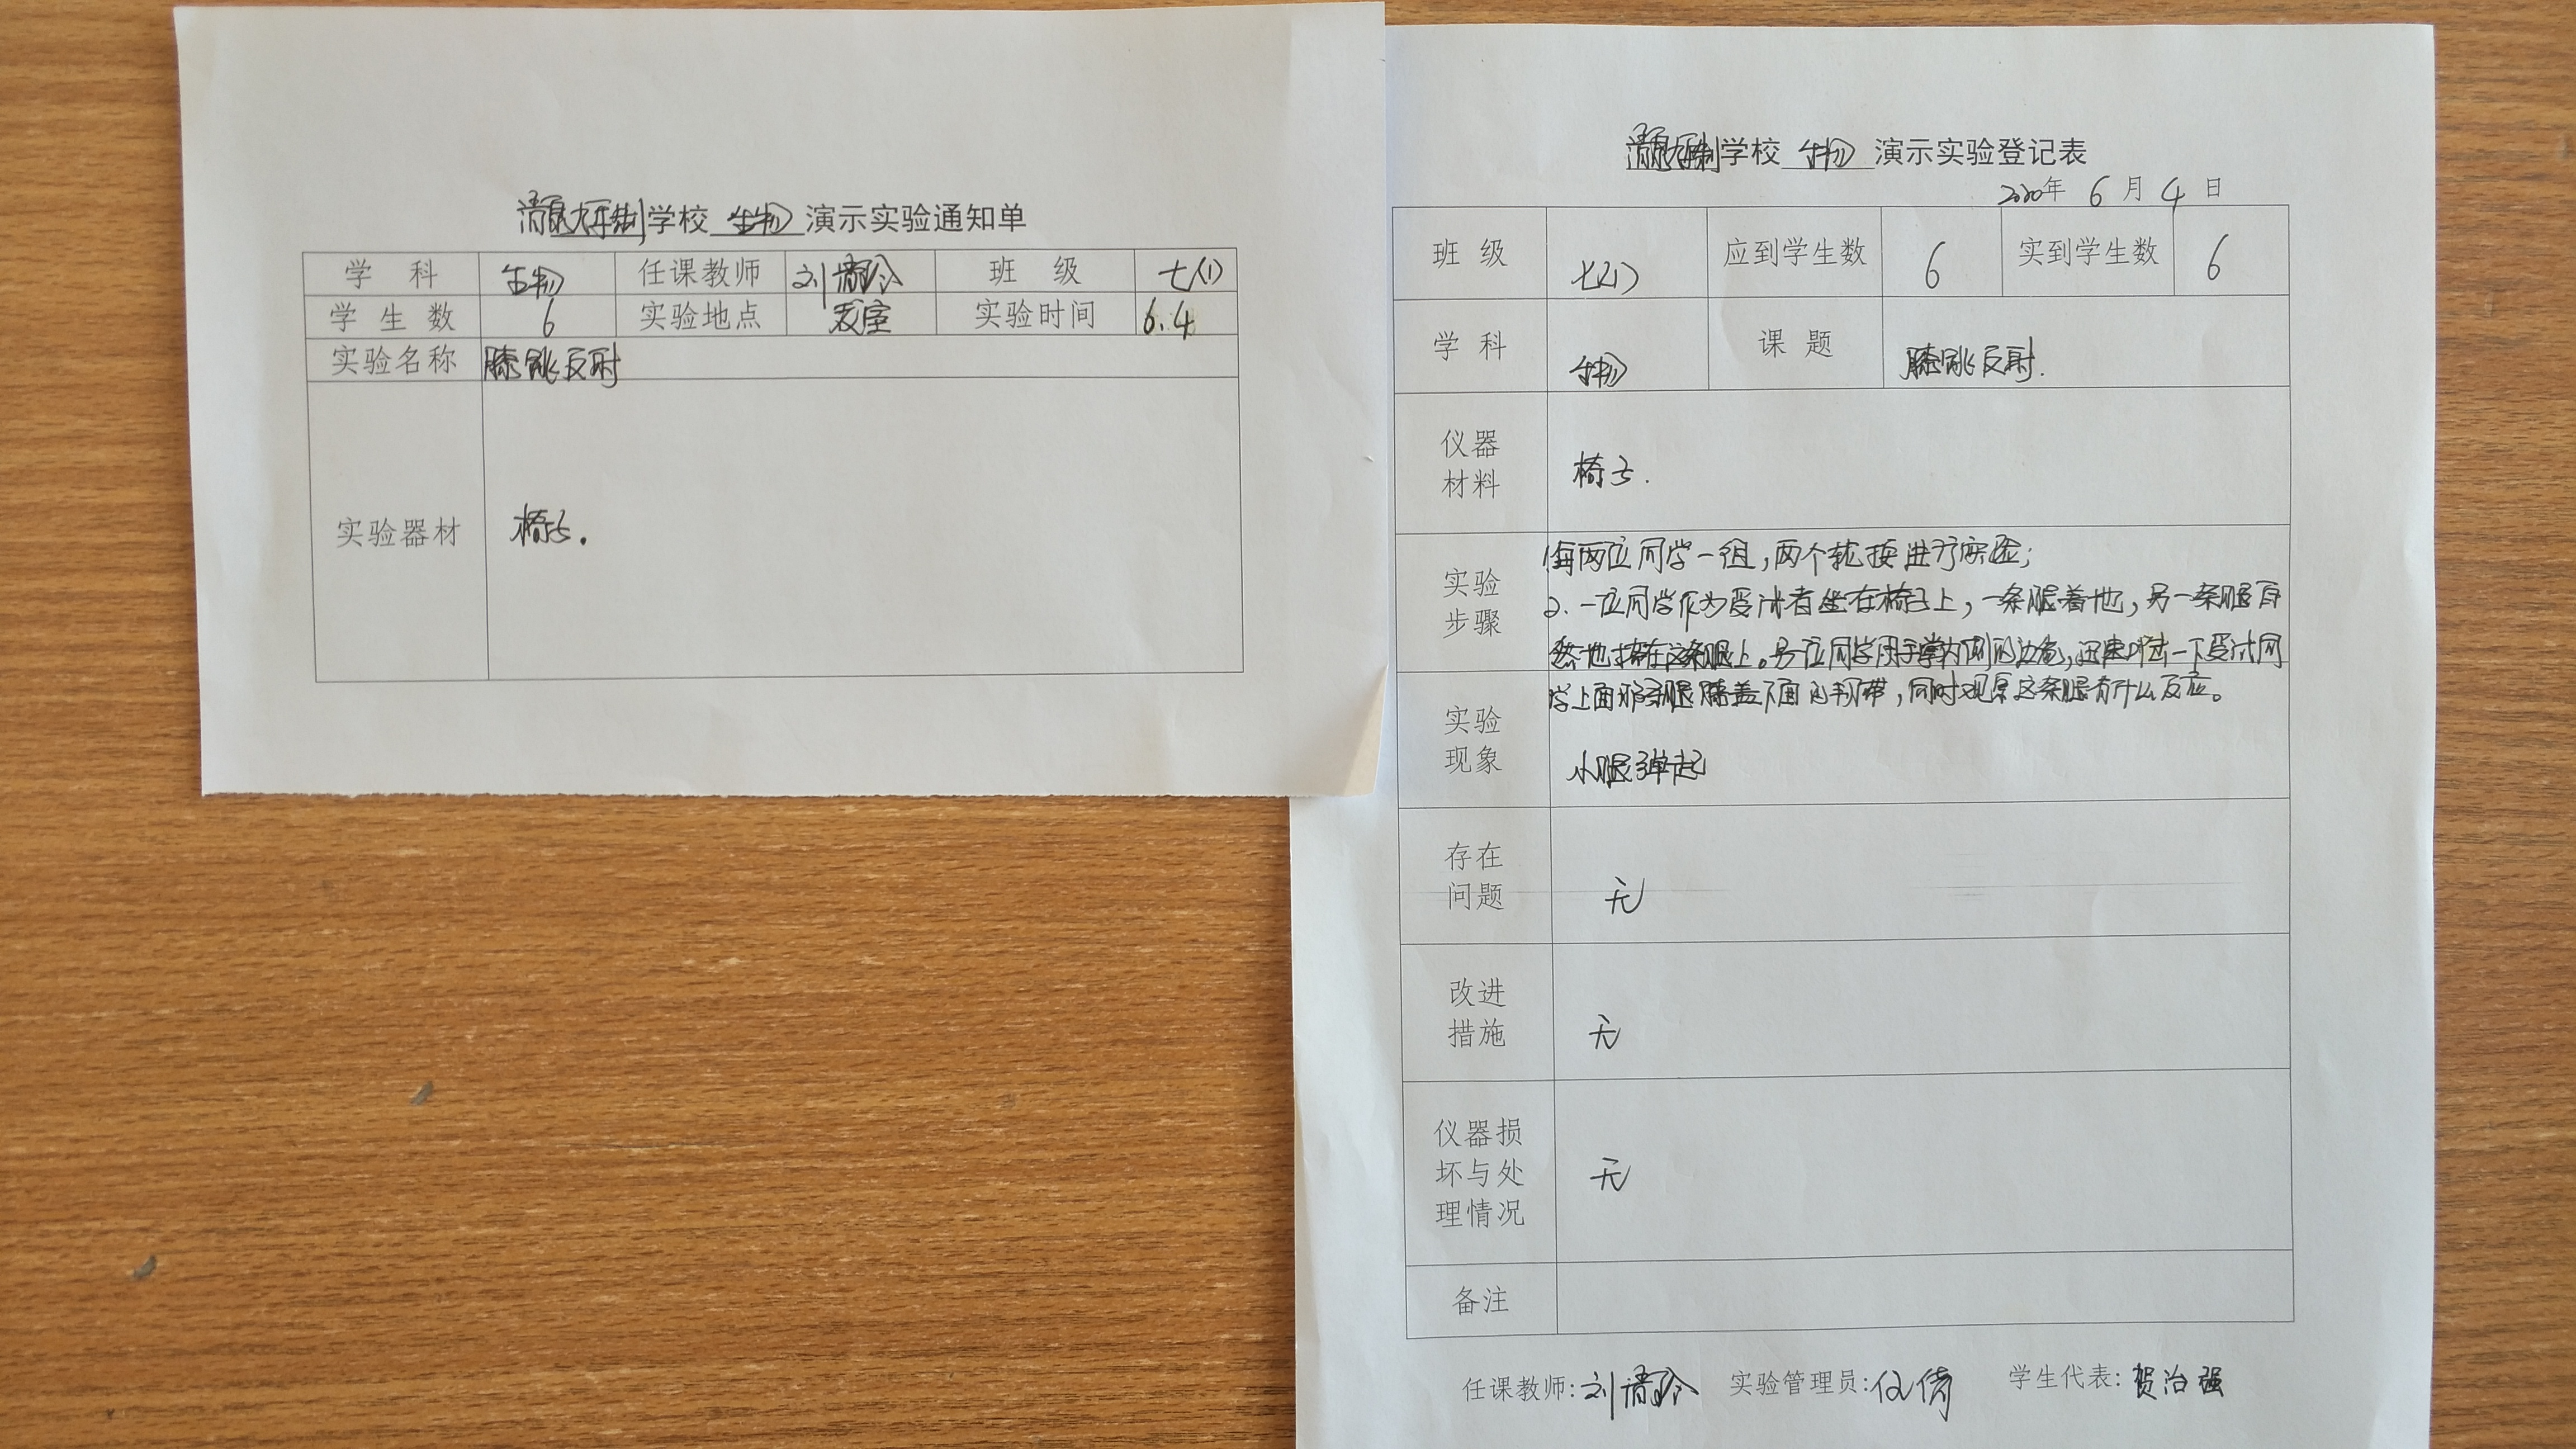 学校 生物 演示实验通知单
学 科 生物 任课教师 刘清玲 班 级 七(1)
学 生 数 6 实验地点 教室 实验时间 6.4
实验名称 膝跳反射
实验器材 椅子.
学校 生物 演示实验登记表
2020年 6 月 4 日
班 级 七(1) 应到学生数 6 实到学生数 6
学 科 生物 课 题 膝跳反射.
仪器
材料
椅子.
实验
步骤
每两位同学一组,两个轮换进行实验;
2. 一位同学作为受试者坐在椅子上,一条腿着地,另一条腿自
然地搭在这条腿上。另一位同学用手掌内侧的边缘,迅速叩击一下受试同
学上面那条腿膝盖下面的韧带,同时观察这条腿有什么反应。
实验
现象
小腿弹起
存在
问题
无
改进
措施
无
仪器损
坏与处
理情况
无
备注
任课教师:刘清玲 实验管理员: 学生代表:贺治强